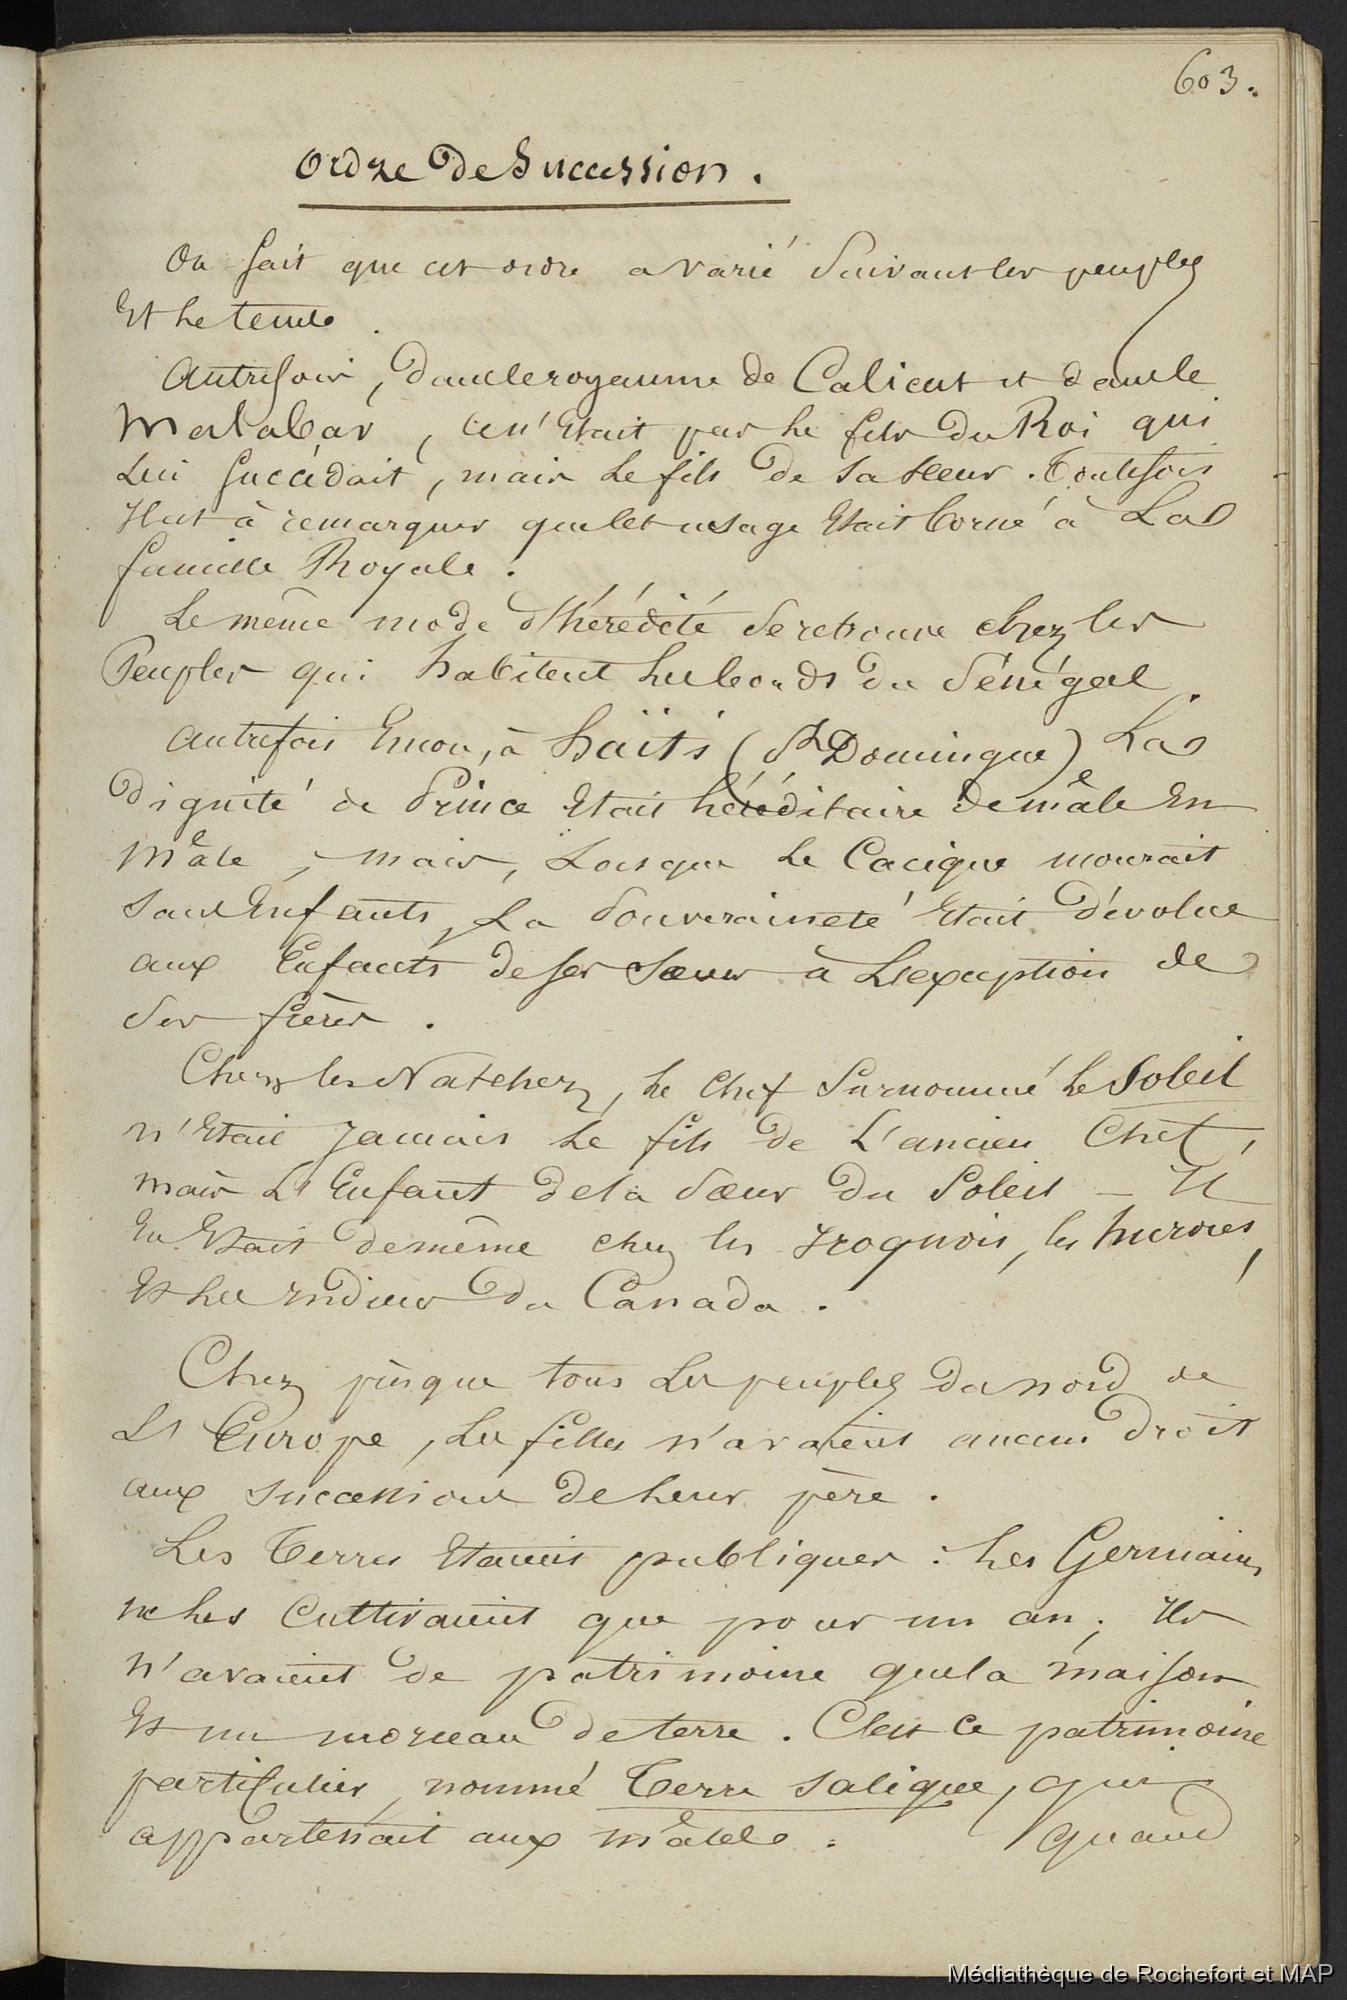 603.
Ordre de Succession.
On sait que cet ordre a varié suivant les peuples
Et le tems.
Autrefois, dans le royaume de Calicut et dans le
Malabar, ce n'était pas le fils du Roi qui
Lui succédait, mais le fils de sa sœur. Toutefois
Il est à remarquer que cet usage était borné à La
famille Royale.
Le même mode d'hérédité se retrouve chez les
Peuples qui habitent les bords du Sénégal.
Autrefois Encor, à haïti (St Domingue) La
dignité de Prince Etait héréditaire de mâle En
mâle, mais, Lorsque le Cacique mourait
sans Enfants, La Souveraineté Etait dévolue
aux Enfants de ses sœurs à L'exception de
Ses frères.
Chez les Natchez, le Chef Surnommé le Soleil
n'Etait Jamais le fils de L'ancien Chef,
mais L'Enfant de la Sœur du Soleil – Il
En Etait de même chez les Iroquois, les hurons,
Et les Indiens du Canada.
Chez presque tous Les peuples du nord de
L'Europe, Les filles n'avaient aucun droit
aux successions de leur père.
Les Terres Etaient publiques : Les Germains
ne les Cultivaient que pour un an; Ils
n'avaient de patrimoine que la maison
Et un morceau de terre. C'est ce patrimoine
particulier, nommé Terre salique, qui
appartenait aux mâles.
quand
Médiathèque de Rochefort et MAP